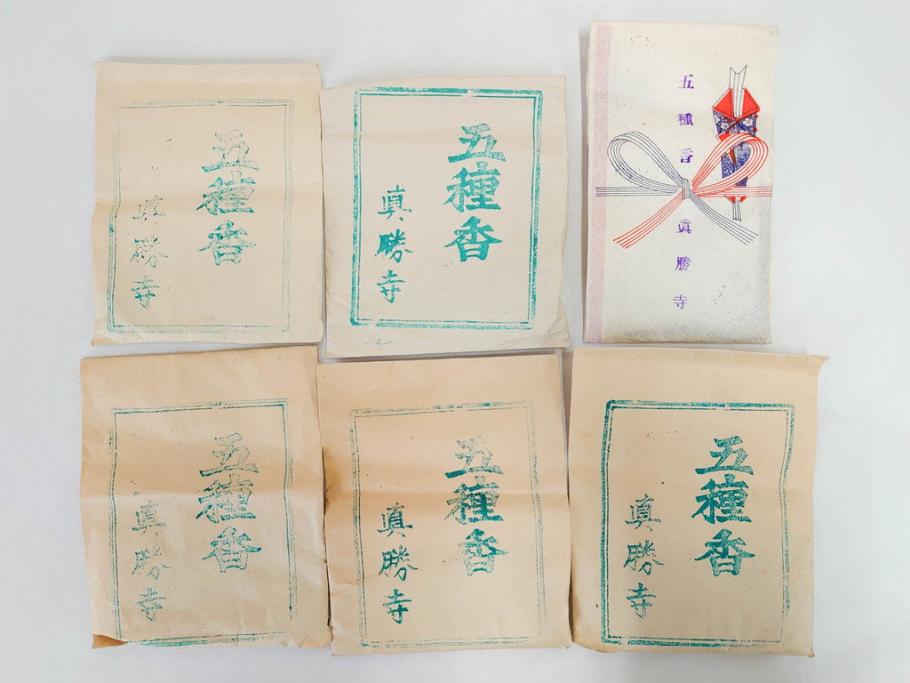 五種香
眞勝寺
五種香
眞勝寺
五種香 眞勝寺
五種香
眞勝寺
五種香
眞勝寺
五種香
眞勝寺